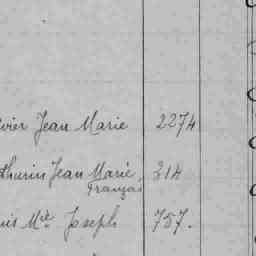 vier Jean Marie 2274
thurin Jean Marie 314
Français
uis Mie Joseph 757.